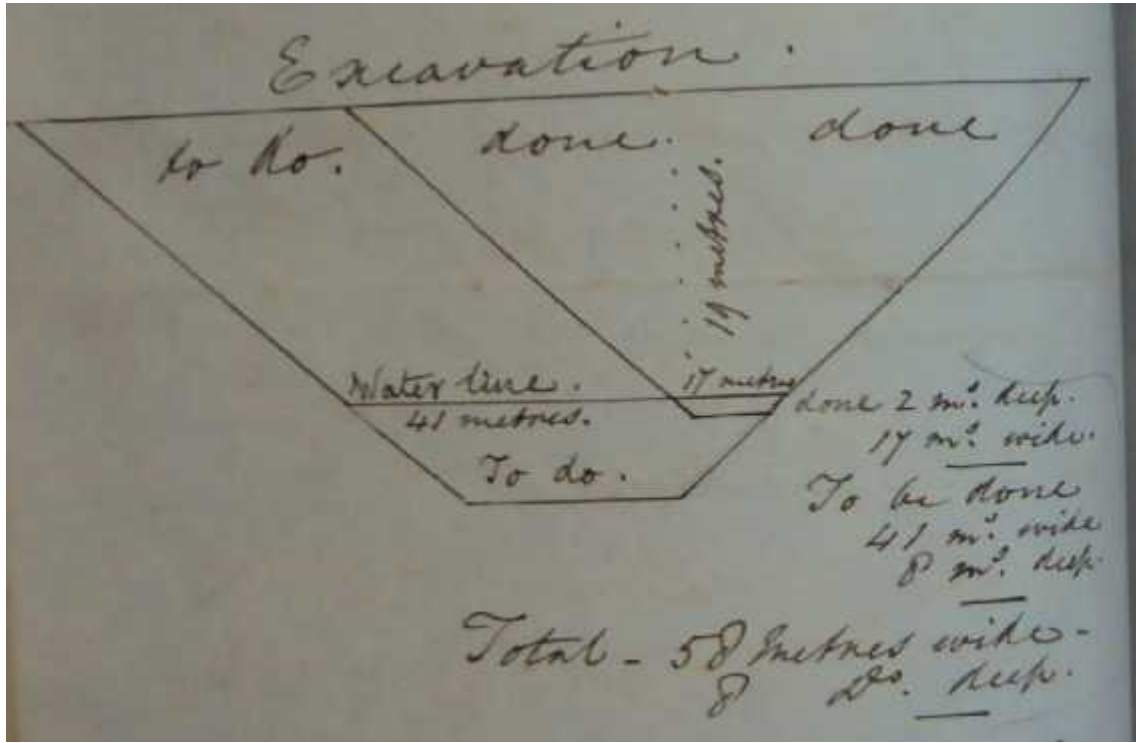 Excavation.
to do.
done.
done
19 metres.
Water line.
41 metres.
17 metres
To do.
done 2 ms. deep.
17 ms. wide.
To be done
41 ms. wide
8 ms. deep.
Total - 58 Metres wide -
8 Do. deep.